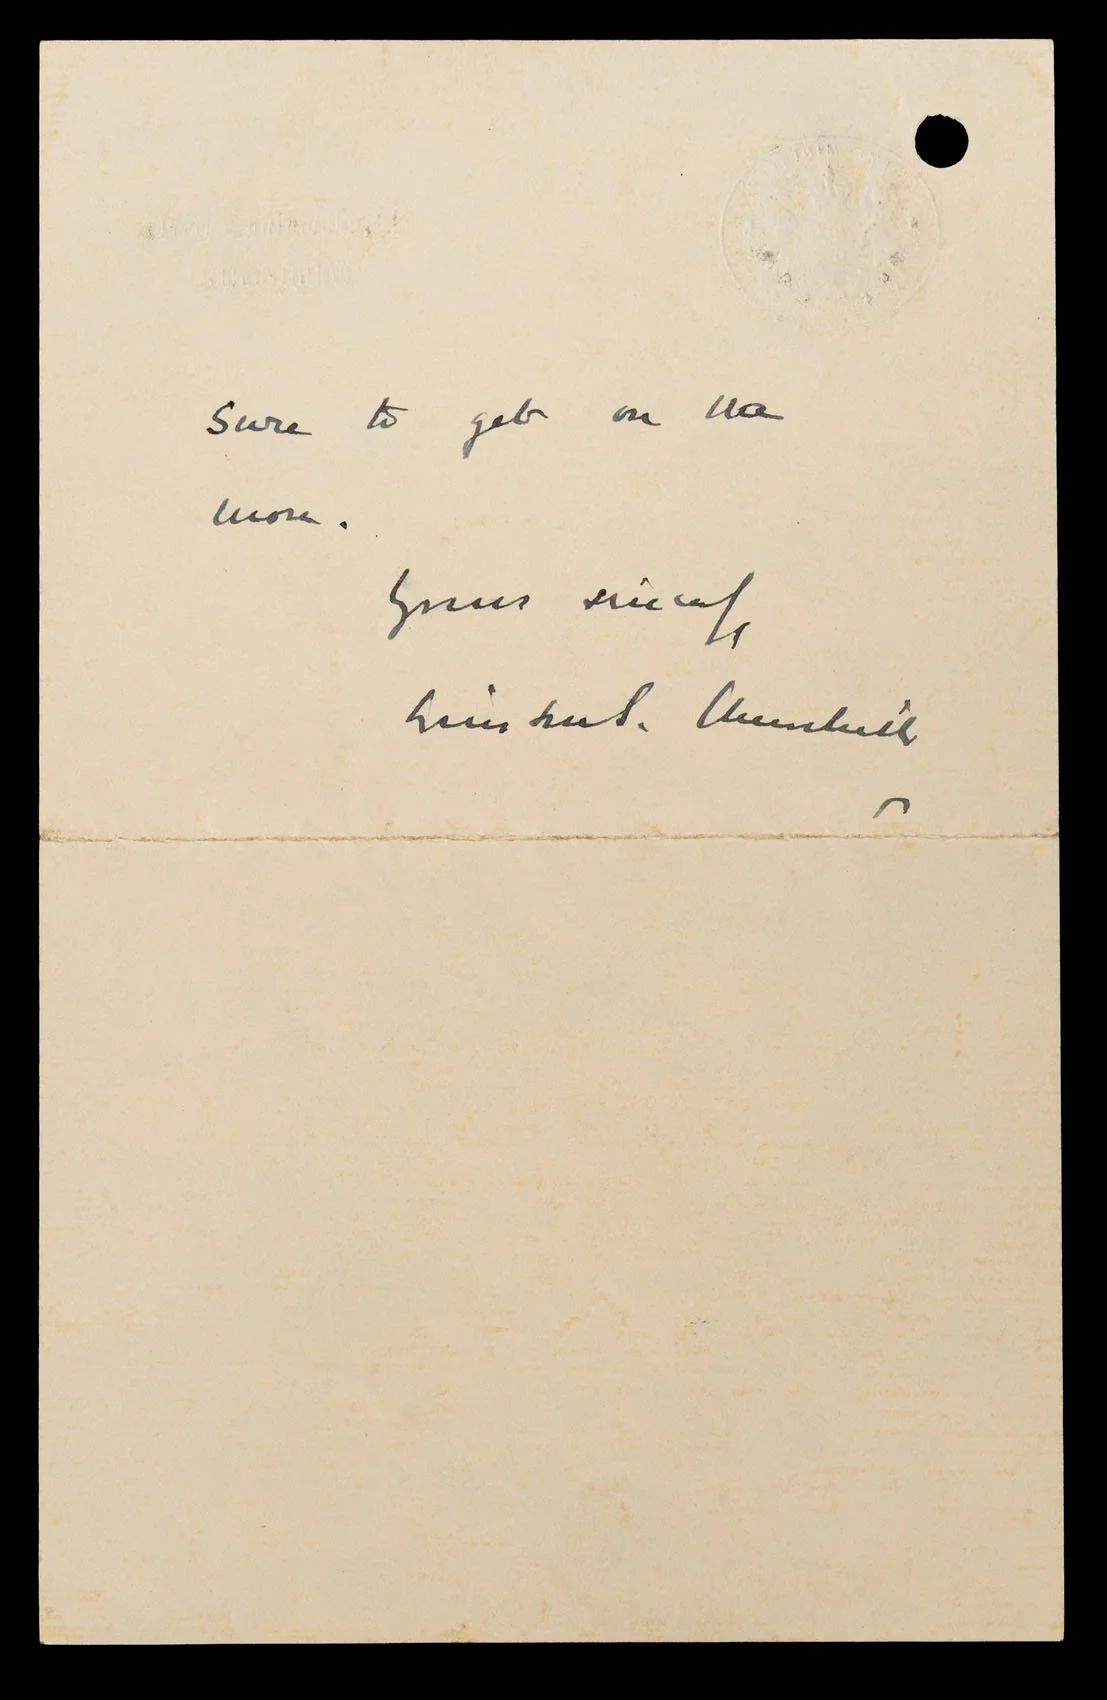 Sure to get on the
more.
Yours sincerely,
Winston S. Churchill